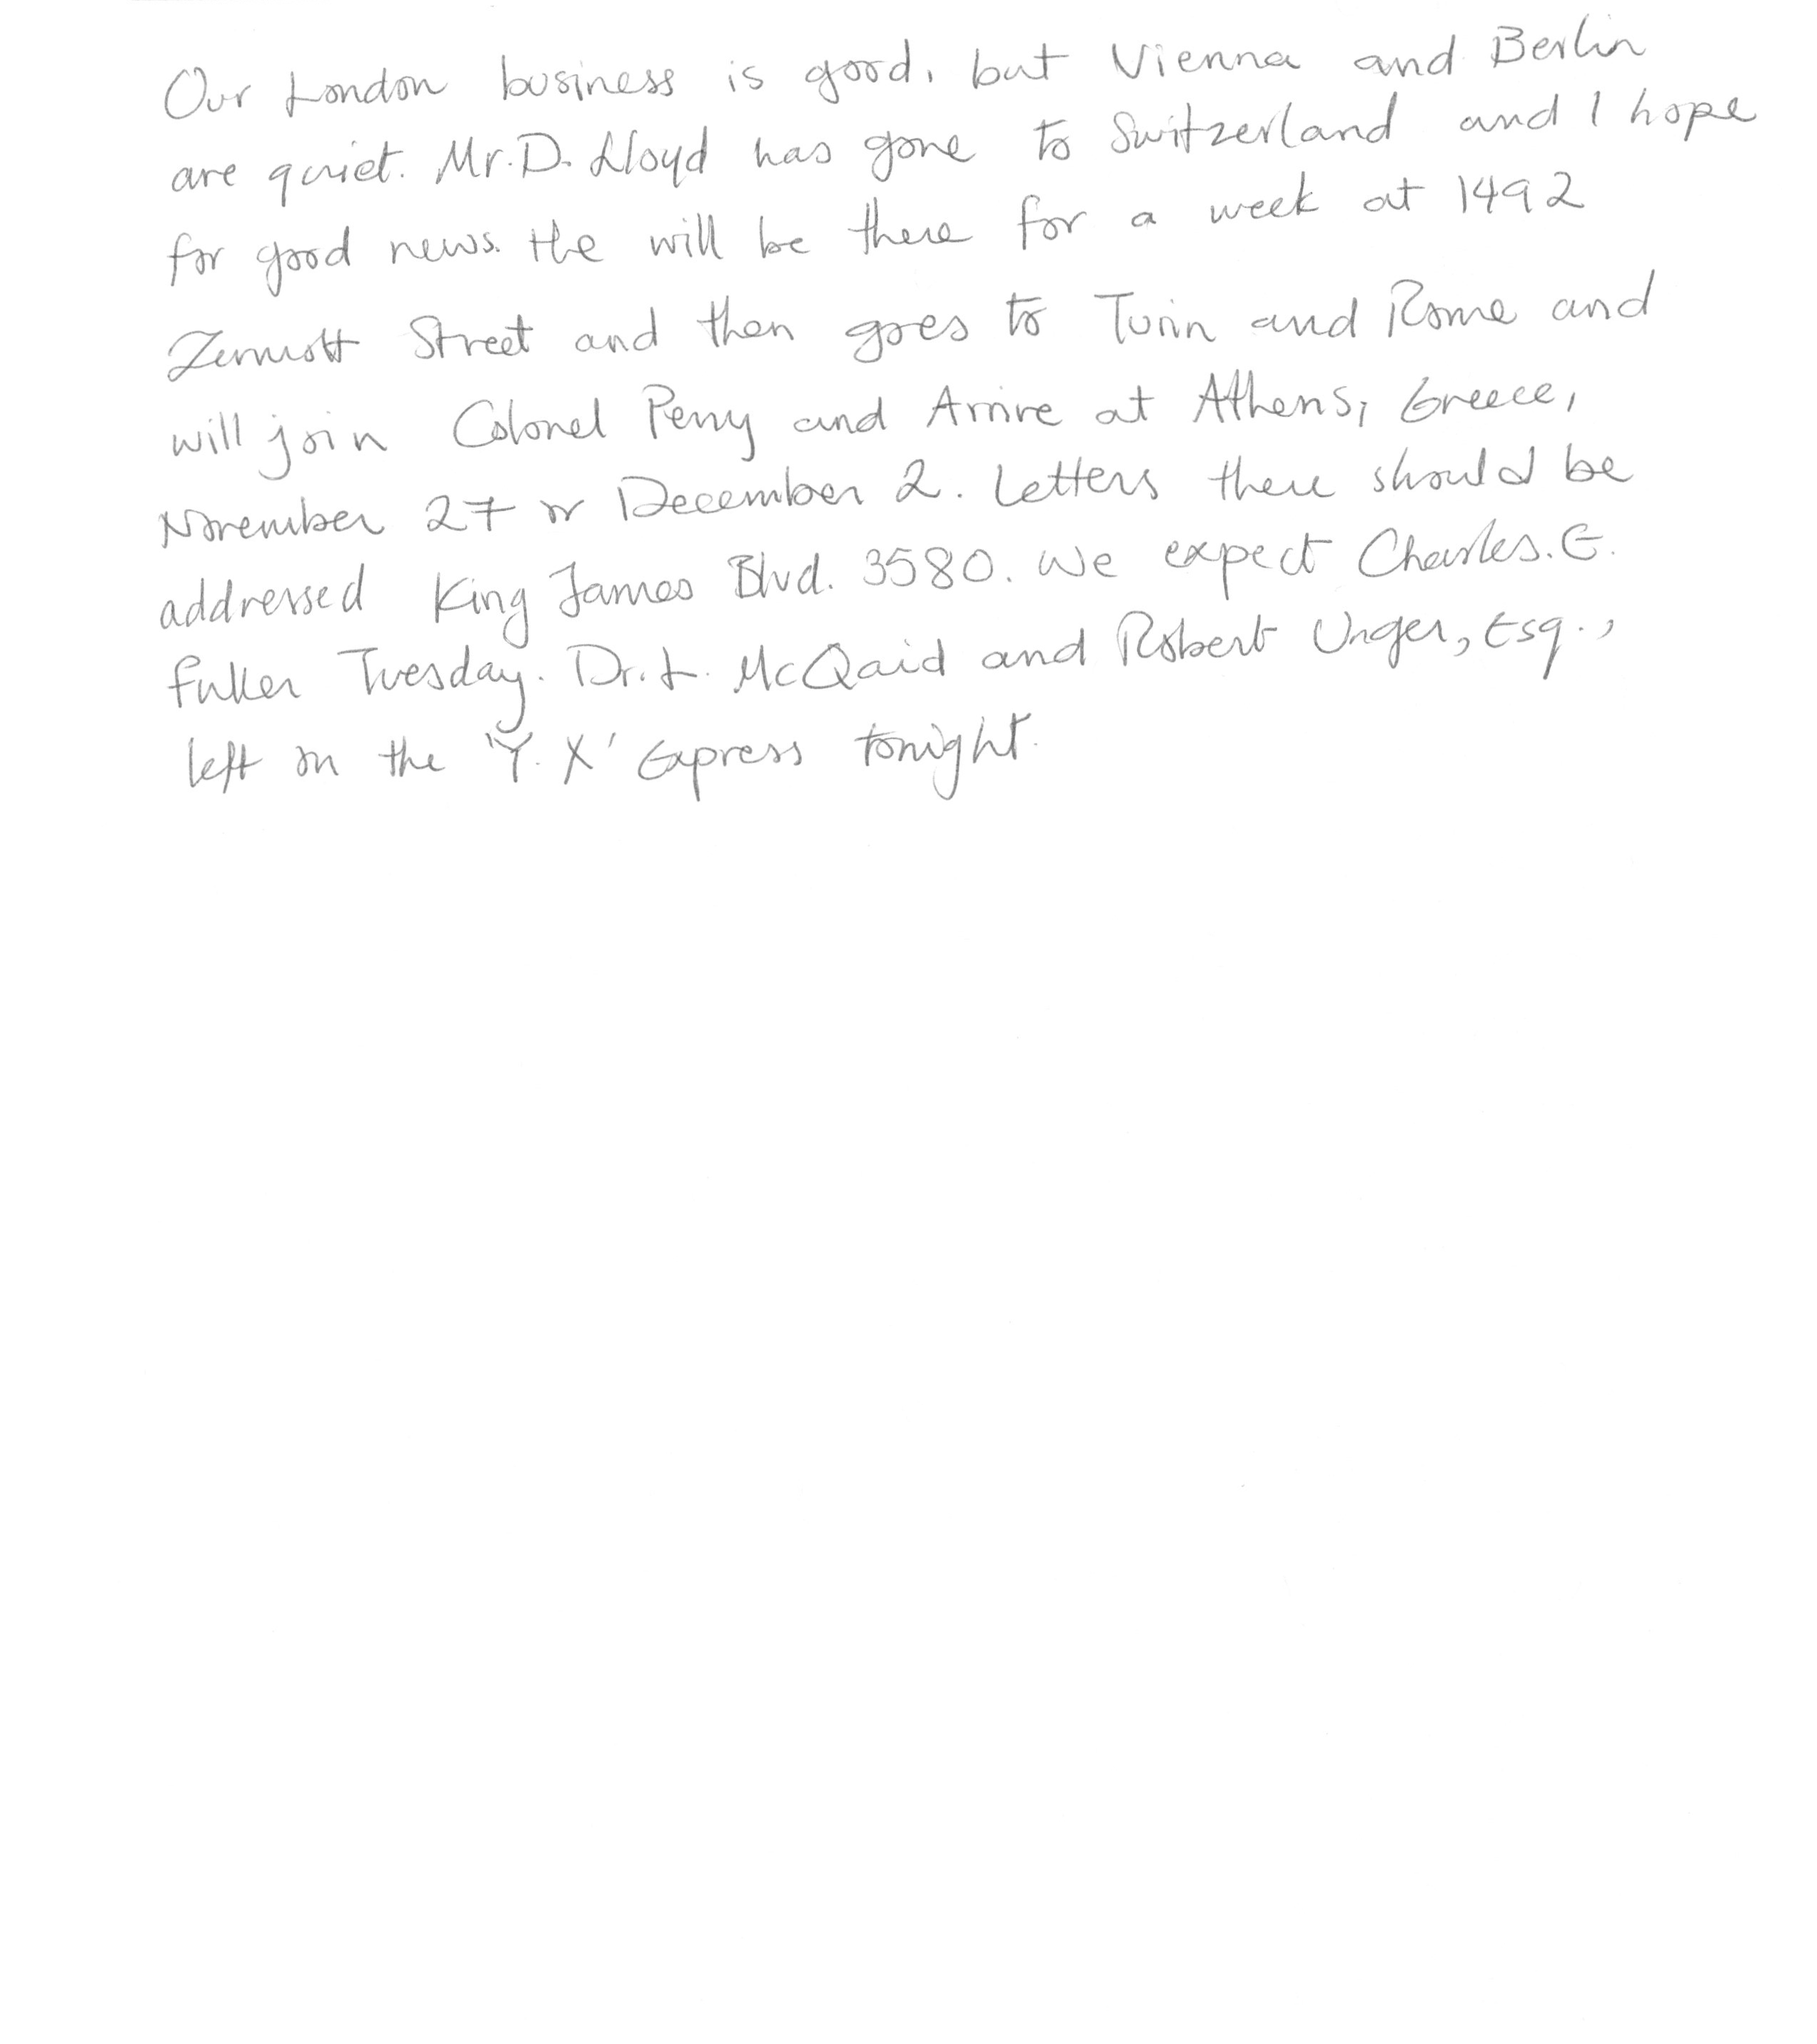 Our London business is good, but Vienna and Berlin
are quiet. Mr. D. Lloyd has gone to Switzerland and I hope
for good news. He will be there for a week at 1492
Zermott Street and then goes to Turin and Rome and
will join Colonel Perry and Arrive at Athens, Greece,
November 27 or December 2. Letters there should be
addressed King James Blvd. 3580. We expect Charles. E.
Fuller Tuesday. Dr. L. McQaid and Robert Unger, Esq.,
left on the 'Y. X' Express tonight.